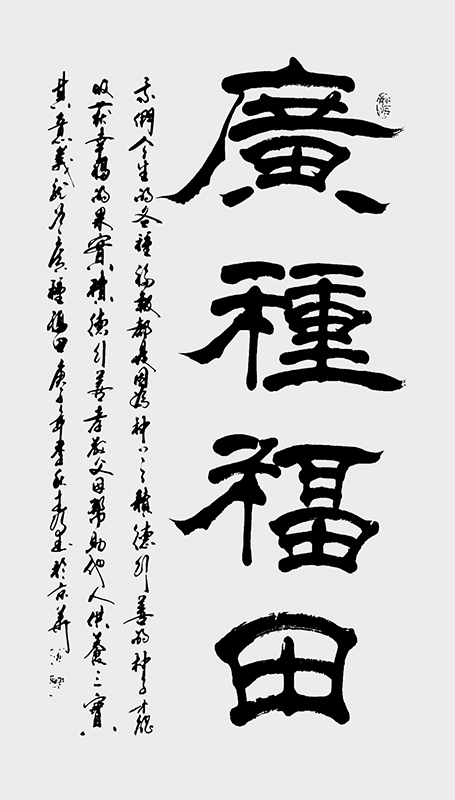 廣種福田
我們今生的各種福報都是因為种下了積德行善的种子才能
收获幸福的果實積德行善孝敬父母幫助他人供養三寶
其意義就是廣種福田庚子年季秋書於京華